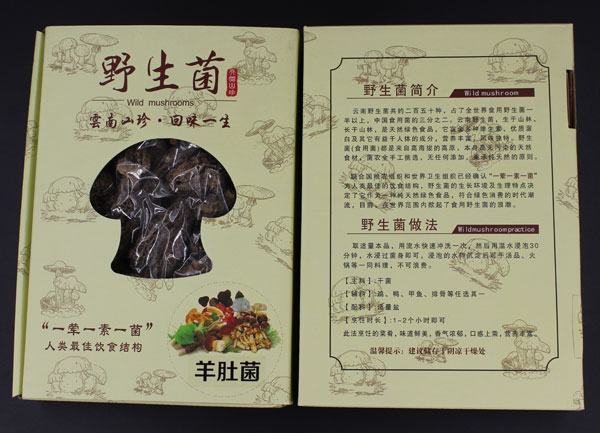 野生菌
Wild mushrooms
雲南山珍·回味一生
“一荤一素一菌”
人类最佳饮食结构
羊肚菌
野生菌简介 Wild mushroom
云南野生菌共约二百五十种，占了全世界食用野生菌一
半以上，中国食用菌的三分之二。云南野生菌，生于山林，
长于山林，是天然绿色食品，它富含多种维生素，优质蛋
白及其它有益于人体的成分，营养丰富，风味独特。野生
菌(食用菌)都是来自高海拔的高原，本身是无污染的天然
食材，菌农全手工挑选，无任何添加，秉承纯天然的原则。
联合国粮农组织和世界卫生组织已经倡导以“一荤一素一菌”
为人类最佳的饮食结构，野生菌的生长环境及生理特点决
定了它作为一种纯天然绿色食品，符合绿色消费的时代潮
流，目前，在世界范围内掀起了食用野生菌的浪潮。
野生菌做法 Wild mushroom practice
取适量本品，用流水快速冲洗一次，然后用温水浸泡30
分钟，水浸过菌身即可，浸泡的水待沉淀后可于汤品、火
锅等一同料理，不可浪费。
【主料】:干菌
【辅料】:鸡、鸭、甲鱼、排骨等任选其一
【配料】:适量盐
【烹饪时长】:1-2个小时即可
此法烹饪的菜肴，味道鲜美，香气浓郁，口感上乘，营养丰富。
温馨提示：建议储存于阴凉干燥处